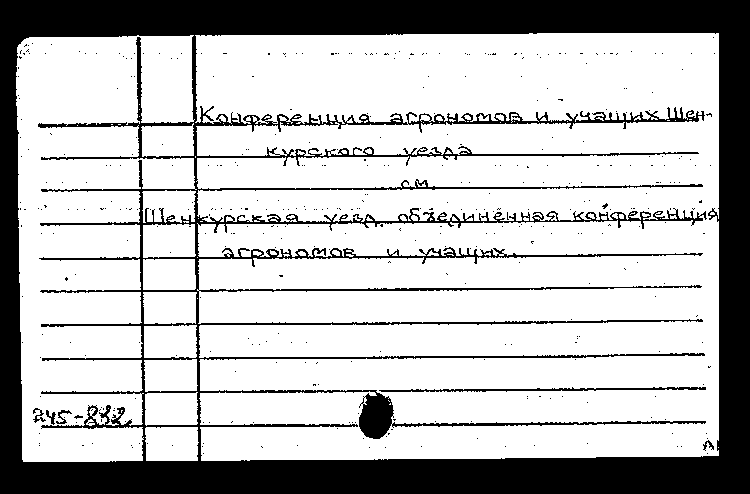 Конференция агрономов и учащих Шен-
курского уезда
см.
Шенкурская уезд. объединенная конференция
агрономов и учащих.
245-832.